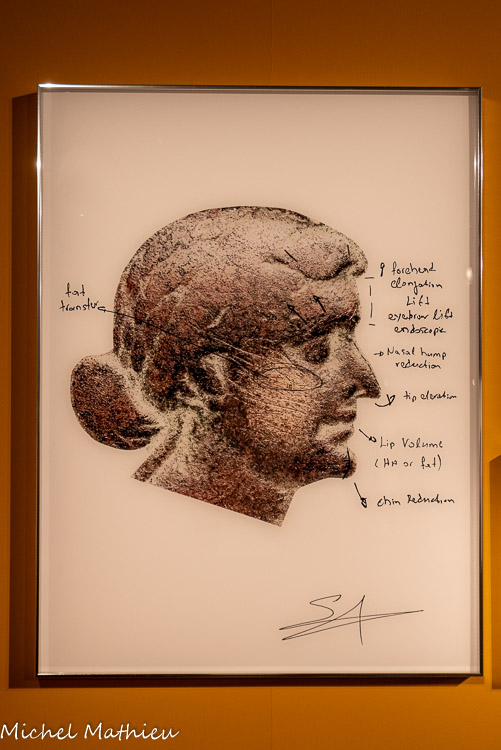 fat
transfer
? forehead
elongation
Lift
eyebrow lift
endoscopic
Nasal hump
reduction
tip elevation
Lip Volume
(HA or fat)
chin Reduction
SA
Michel Mathieu